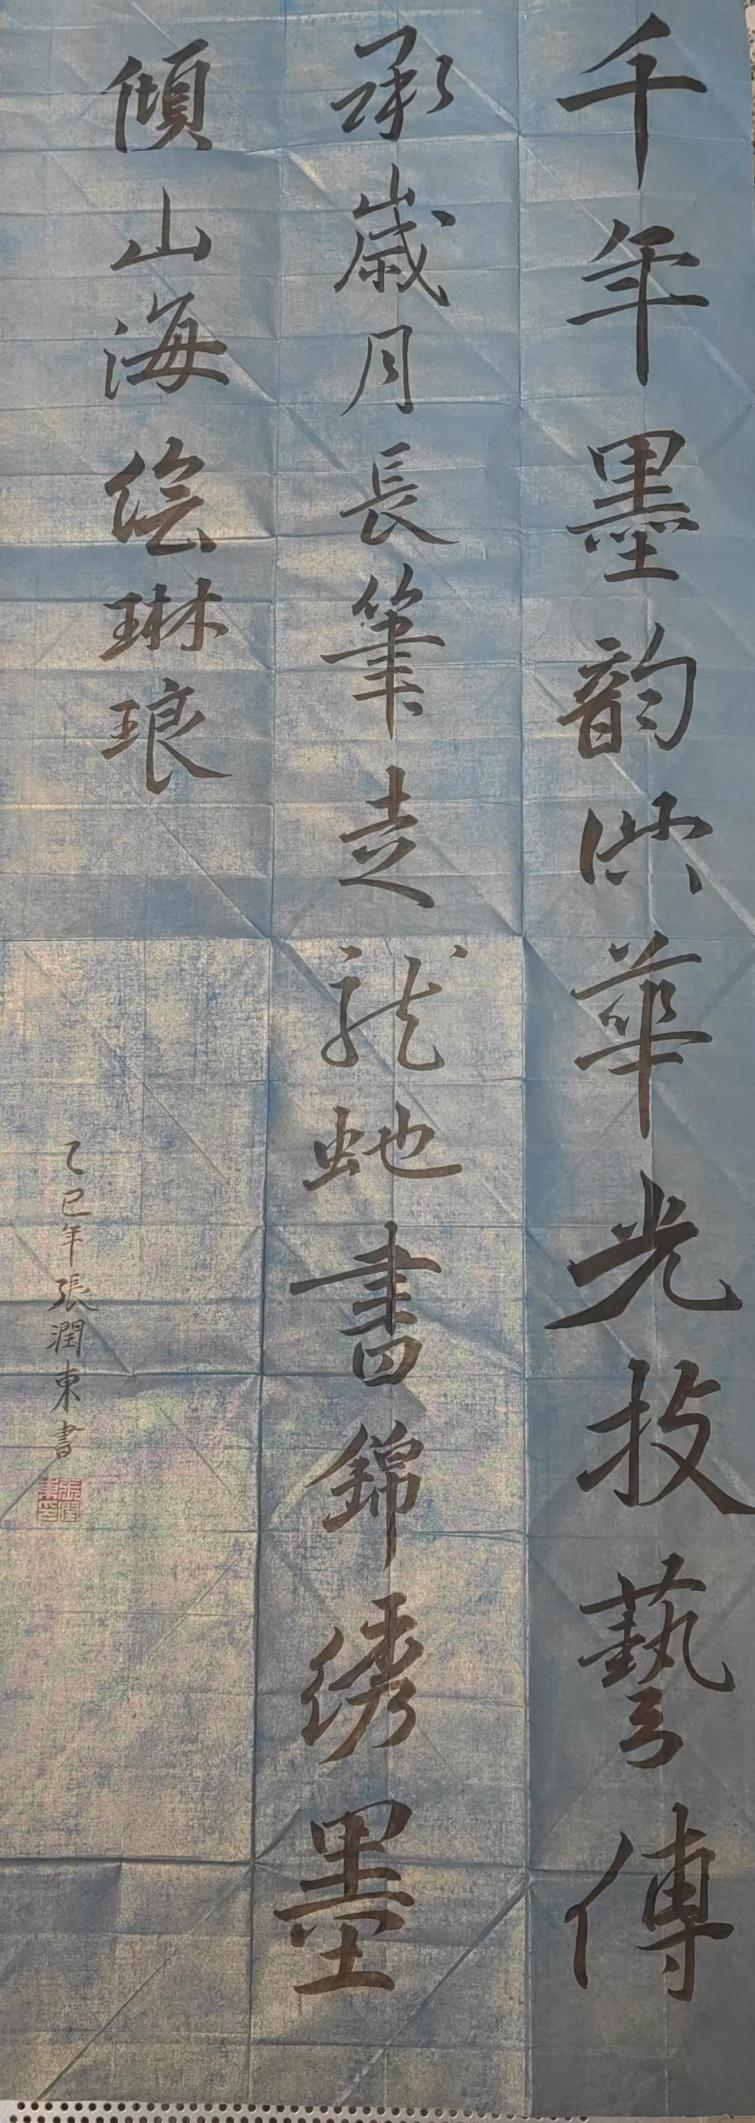 千年墨韵興華光技藝傳
承歲月長筆走龍蛇書錦绣墨
傾山海绘琳琅
乙巳年張潤東書
張潤東印